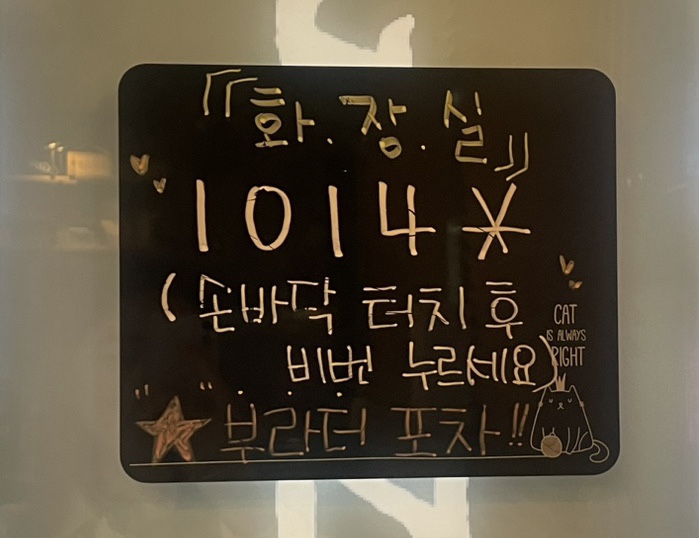 『화.장.실』
1014*
(손바닥 터치 후
비번 누르세요)
CAT
IS ALWAYS
RIGHT
"★" 부라더 포차!!